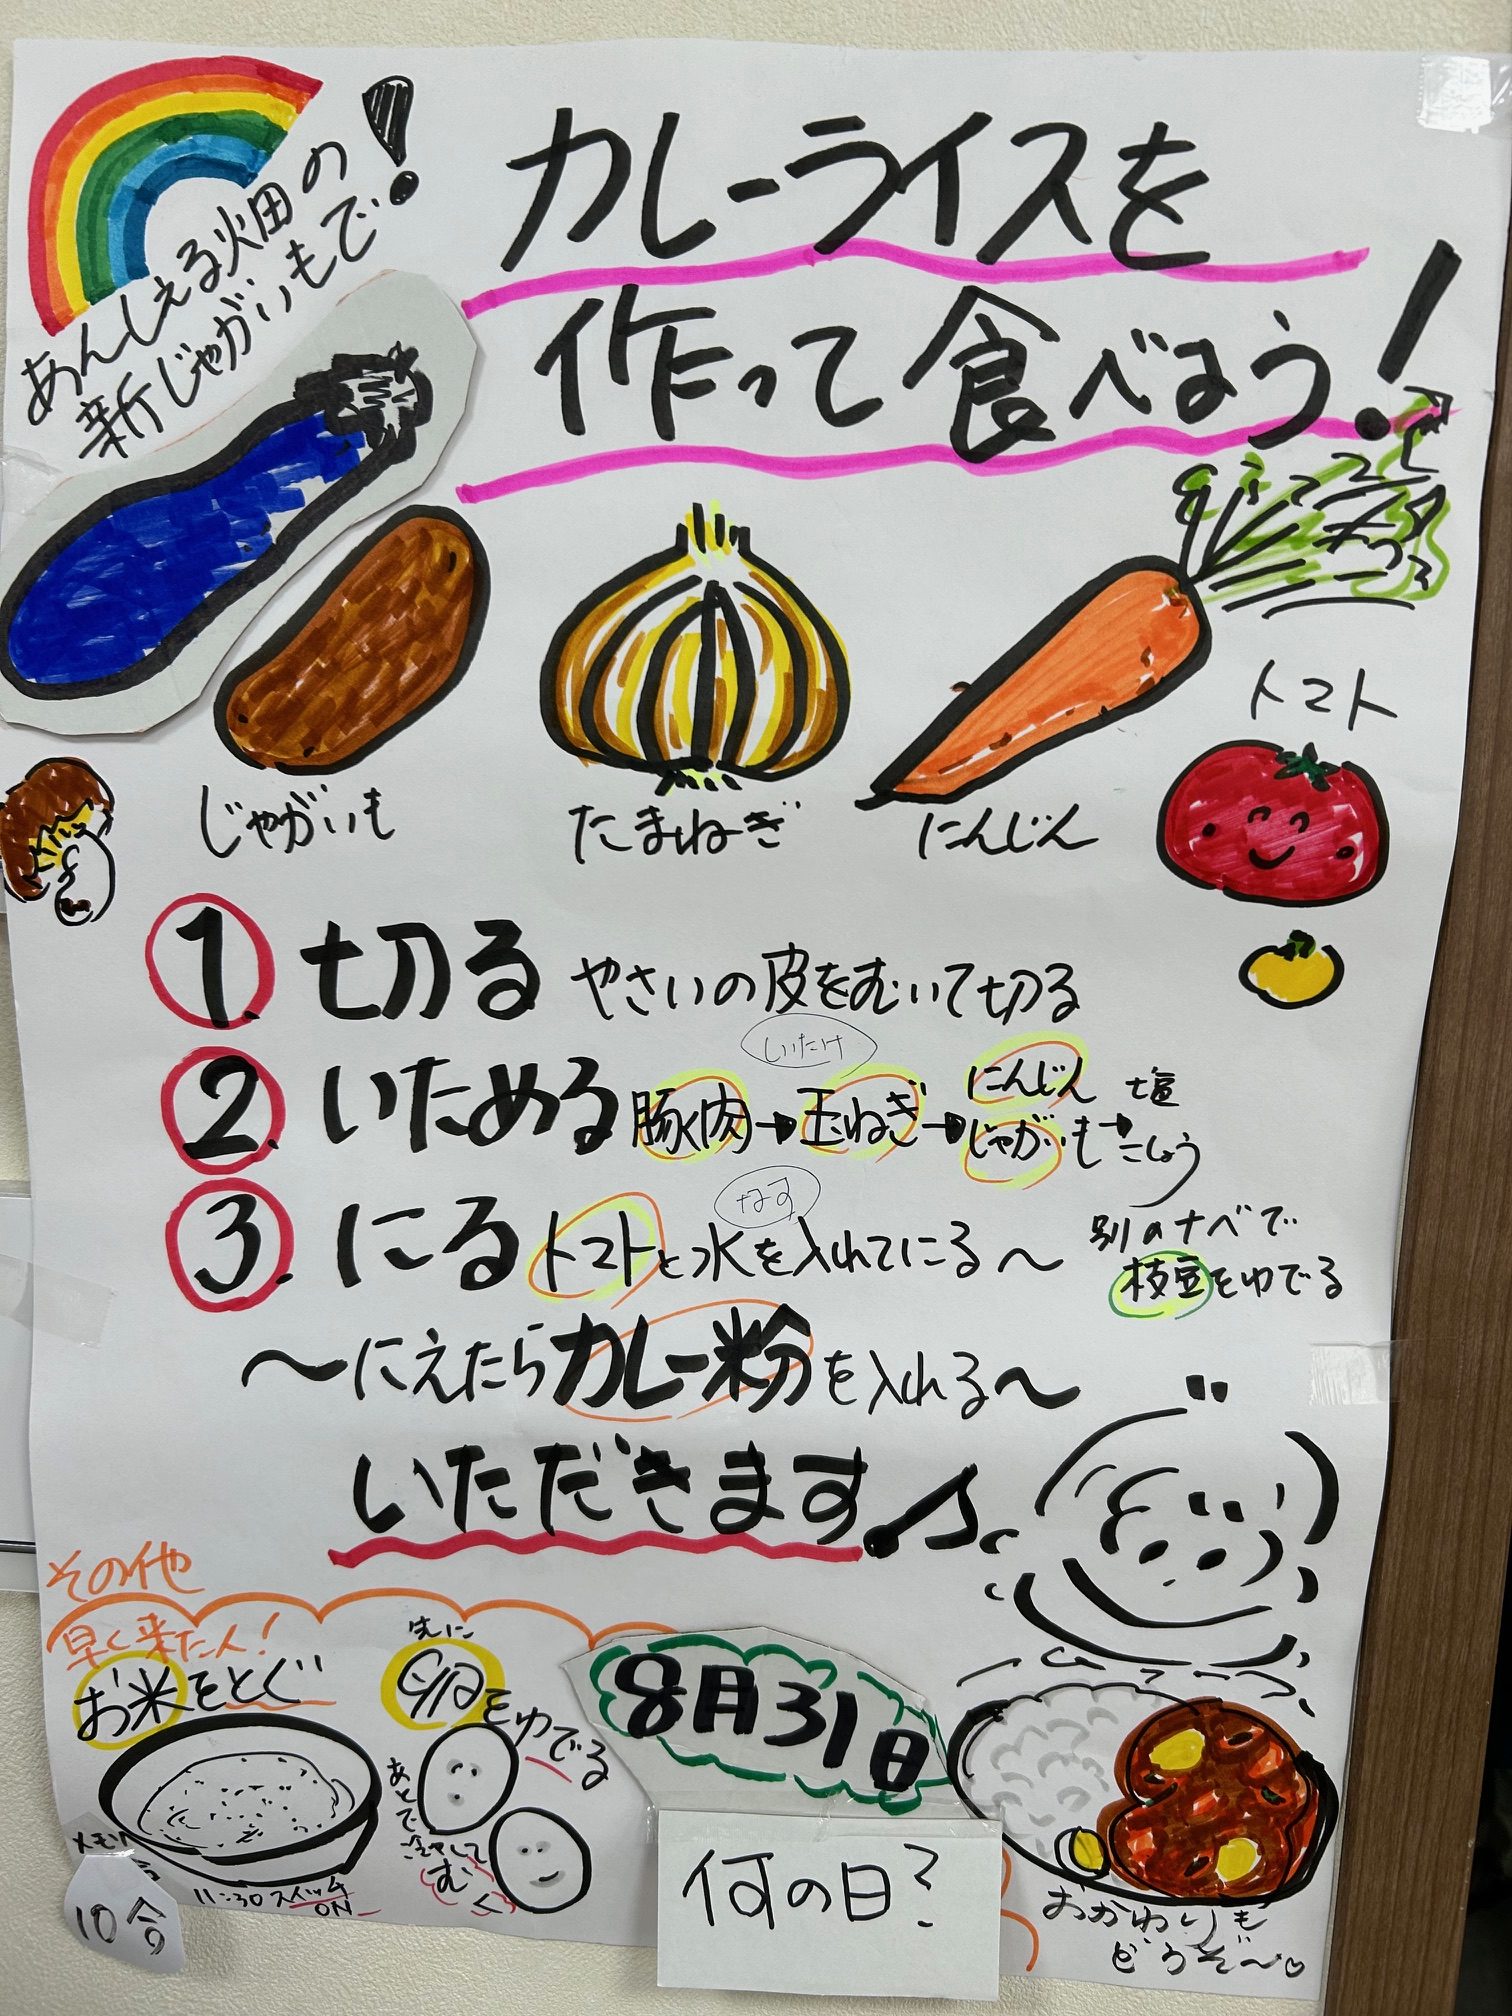 あんしぇる火田の
新じゃがいもで!
カレーライスを
作って食べよう!
じゃがいも
たまねぎ
にんじん
トマト
1. 切る やさいの皮をむいて切る
しいたけ
2. いためる 豚肉→玉ねぎ→にんじん じゃがいも→塩 こしょう
なす
3. にる トマトと水を入れてにる〜
別のナベで
枝豆をゆでる
〜にえたらカレー粉を入れる〜
いただきます♪
その他
早く来た人!
お米をとぐ
11:30 スイッチ
ON
10合
先に
卵をゆでる
あとで
冷やして
むく
8月31日
何の日?
おかわりも
どうぞ〜♡